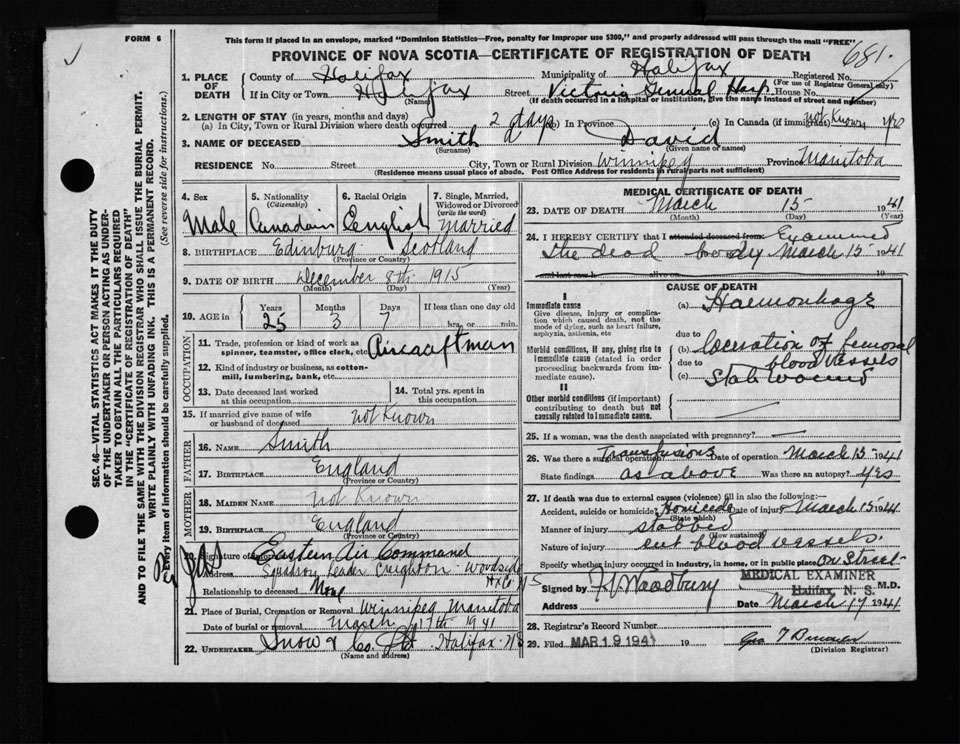 FORM 6
This form if placed in an envelope, marked "Dominion Statistics—Free, penalty for improper use $300," and properly addressed will pass through the mail "FREE"
PROVINCE OF NOVA SCOTIA—CERTIFICATE OF REGISTRATION OF DEATH
681.
1. PLACE OF DEATH
County of Halifax
Municipality of Halifax
Registered No.
(For use of Registrar General only)
If in City or Town Halifax
(Name)
Street Victoria General Hosp. House No.
(If death occurred in a hospital or institution, give the name instead of street and number)
2. LENGTH OF STAY (in years, months and days)
(a) In City, Town or Rural Division where death occurred 2 days (b) In Province (c) In Canada (if immigrant) not Known
3. NAME OF DECEASED Smith David
(Surname) (Given name or names)
RESIDENCE No. Street City, Town or Rural Division Winnipeg Province Manitoba
(Residence means usual place of abode. Post Office Address for residents in rural parts not sufficient)
4. Sex Male
5. Nationality (Citizenship) Canadain
6. Racial Origin English
7. Single, Married, Widowed or Divorced (write the word) Married
8. BIRTHPLACE Edinburg Scotland
(Province or Country)
9. DATE OF BIRTH December 8th 1915
(Month) (Day) (Year)
10. AGE in Years 25 Months 3 Days 7 If less than one day old hrs. or min.
OCCUPATION
11. Trade, profession or kind of work as spinner, teamster, office clerk, etc. Aircraftman
12. Kind of industry or business, as cotton-mill, lumbering, bank, etc.
13. Date deceased last worked at this occupation
14. Total yrs. spent in this occupation
15. If married give name of wife or husband of deceased not Known
FATHER
16. NAME Smith
17. BIRTHPLACE England
(Province or Country)
MOTHER
18. MAIDEN NAME not Known
19. BIRTHPLACE England
(Province or Country)
20. Signature of Eastern Air Command
Squadron Leader Creighton - Woodside
Address
Hfx Co NS
Relationship to deceased None
21. Place of Burial, Cremation or Removal Winnipeg Manitoba
Date of burial or removal March 17th 1941
22. UNDERTAKER Snow & Co. Ltd. Halifax NS
(Name and address)
MEDICAL CERTIFICATE OF DEATH
23. DATE OF DEATH March 15 1941
(Month) (Day) (Year)
24. I HEREBY CERTIFY that I attended deceased from: Examined
the dead body March 15 1941
and last saw alive on 19
CAUSE OF DEATH
I
Immediate cause
Give disease, injury or complication which caused death, not the mode of dying, such as heart failure, asphyxia, asthenia, etc
(a) Haemorrhage
due to
Morbid conditions, if any, giving rise to immediate cause (stated in order proceeding backwards from immediate cause).
(b) laceration of femoral
blood vessels
due to
(c) Stab wound
II
Other morbid conditions (if important) contributing to death but not causally related to immediate cause.
25. If a woman, was the death associated with pregnancy?
26. Was there a surgical operation? Transfusions Date of operation March 15 1941
State findings as above Was there an autopsy? Yes
27. If death was due to external causes (violence) fill in also the following:—
Accident, suicide or homicide? Homicide Date of injury March 15 1941
(State which)
Manner of injury stabbed
(How sustained)
Nature of injury cut blood vessels.
Specify whether injury occurred in Industry, in home, or in public place on Street
Signed by M.D.
MEDICAL EXAMINER
Halifax, N. S.
Address Date March 17 1941
28. Registrar's Record Number
29. Filed MAR 19 1941 19
(Division Registrar)
SEC. 46—VITAL STATISTICS ACT MAKES IT THE DUTY
OF THE UNDERTAKER OR PERSON ACTING AS UNDERTAKER TO OBTAIN ALL THE PARTICULARS REQUIRED
IN THE "CERTIFICATE OF REGISTRATION OF DEATH"
AND TO FILE THE SAME WITH THE DIVISION REGISTRAR WHO SHALL ISSUE THE BURIAL PERMIT.
WRITE PLAINLY WITH UNFADING INK. THIS IS A PERMANENT RECORD.
Every item of information should be carefully supplied. (See reverse side for instructions.)